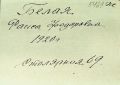 Белая
Фаина Федоровна
1920 г.
Столярная 69.